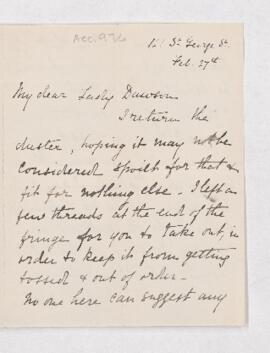 Acc. 976
St. George St.
Feb. 27th
My dear Lady Dawson
I return the
duster, hoping it may not be
considered spoilt for that &
fit for nothing else - I left a
few threads at the end of the
fringe for you to take out, in
order to keep it from getting
tossed & out of order -
No one here can suggest any